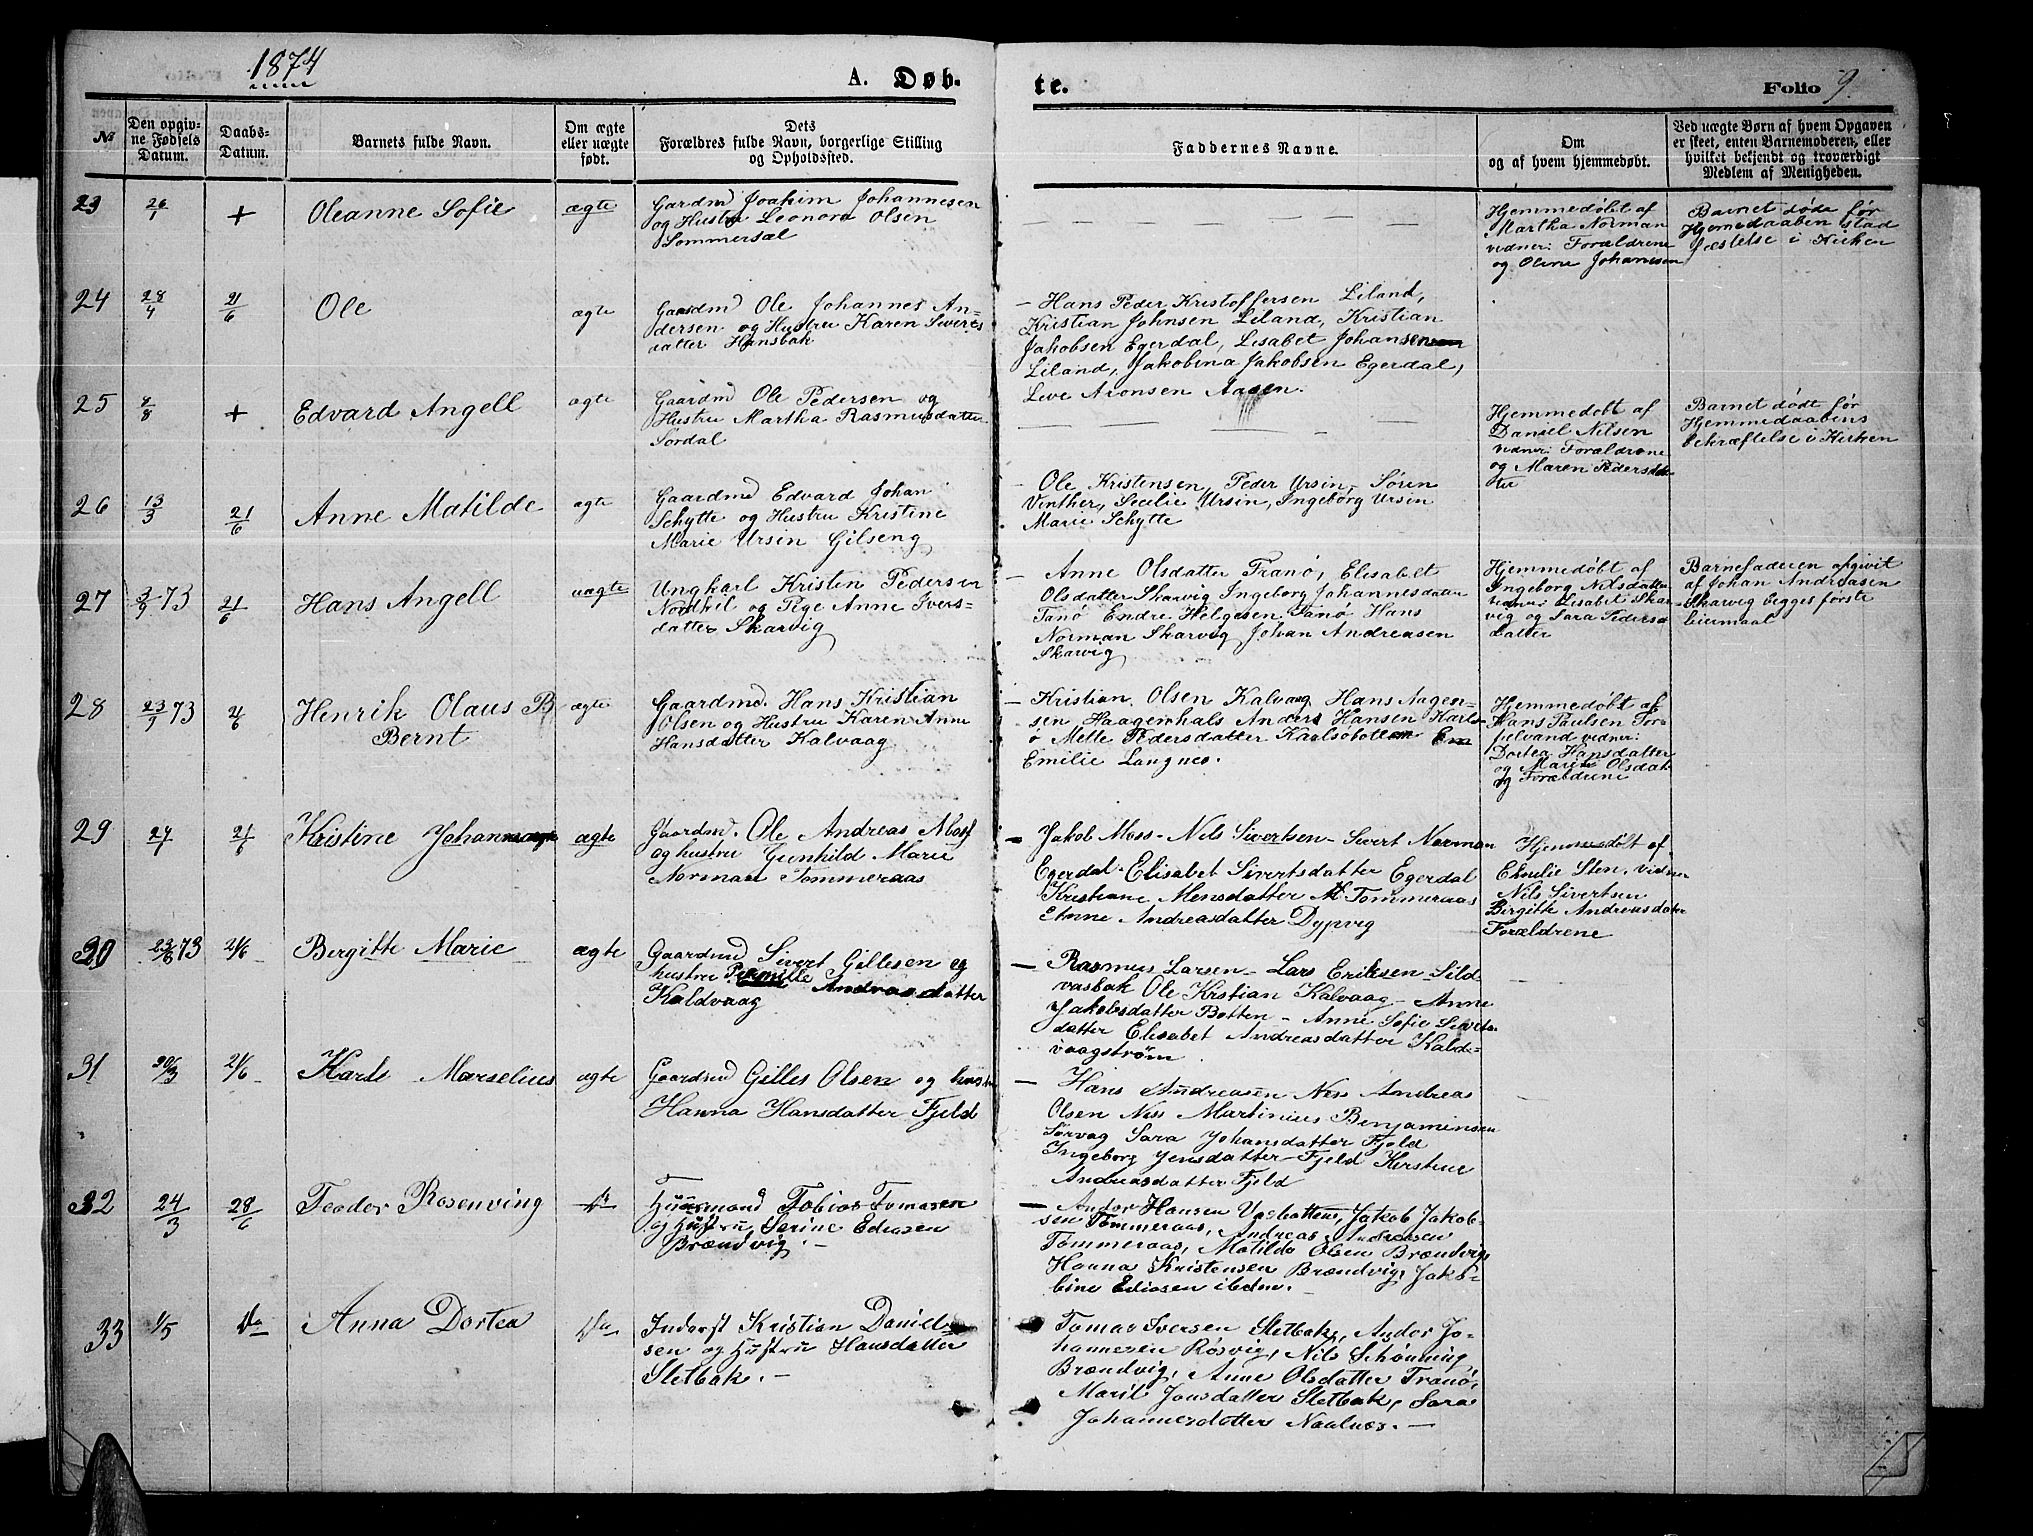 1874
A. Døb-
te.
Folio 9.
№
Den opgiv-
ne Fødsels
Datum.
Daabs-
Datum.
Barnets fulde Navn.
Om ægte
eller uægte
født.
Dets
Forældres fulde Navn, borgerlige Stilling
og Opholdssted.
Faddernes Navne.
Om
og af hvem hjemmedøbt.
Ved uægte Børn af hvem Opgaven
er skeet, enten Barnemoderen, eller
hvilket bekjendt og troværdigt
Medlem af Menigheden.
23
26/1
+
Oleanne Sofie
ægte
Gardmd Joakim Johannesen
og Hustru Leonora Olsen
Sommersæl
Hjemmedøbt af
Martha Norman
vidner: Forældrene
og Oline Johansen
Barnet døde før
Hjemedaaben stad
fæstelse i Kirken
24
28/4
21/6
Ole
ægte
Gaardmd Ole Johannes An-
dersen og Hustru Karen Siverts
datter Hansbak
Hans Peder Kristoffersen Liland,
Kristian Johnsen Liland, Kristian
Jakobsen Egerdal, Lisabet Johansen
Liland, Jakobina Jakobsen Egerdal,
Leve Aronsen Aasen.
25
4/8
+
Edvard Angell
ægte
Gaardmd Ole Pedersen og
Hustru Martha Rasmusdatter
Sørdal
Hjemmedøbt af
Daniel Nilsen
vidner: Forældrene
og Maren Pedersda
tter
Barnet dødt før
Hjemmedaabens
bekræftelse i Kirken
26
13/3
21/6
Anne Matilde
ægte
Gaardmd Edvard Johan
Schytte og Hustru Kristine
Marie Ursin Gilseng
Ole Kristensen, Peder Ursin, Søren
Vinther, Secilie Ursin, Ingeborg Ursin
Marie Schytte
27
3/9 73
21/6
Hans Angell
uægte
Ungkarl Kristen Pedersen
Nordkil og Pige Anne Ivers-
datter Skarvig
Anne Olsdatter Tranø, Elisabet
Olsdatter Skarvig Ingeborg Johannesdatter
Tanø Endre Helgesen Tanø Hans
Norman Skarvig Johan Andreasen
Skarvig
Hjemmedøbt af
Ingeborg Nilsdatter
vidner: Lisabet Skar
vig og Sara Pedersd
datter
Barnefaderen afgivit
af Johan Andreasen
Skarvig begges første
leiermaal
28
23/9 73
21/6
Henrik Olaus B
Bernt
ægte
Gaardmd. Hans Kristian
Olsen og Hustru Karen Anne
Hansdatter Kalvaag
Kristian Olsen Kalvaag Hans Aagen-
sen Haagenhals Anders Hansen Karls-
ø Mette Pedersdatter Karlsøbotten
Emilie Langnes.
Hjemmedøbt af
Hans Paulsen For-
selvand vidner:
Dortea Hansdatter
og Marie Olsdat
og Forældrene
29
27/1
21/6
Kristine Johanna
ægte
Gaardmd. Ole Andreas Moss
og hustru Gunhild Marie
Norman Tømmeraas
Jakob Moss - Nils Sivertsen - Sivert Norman
Egerdal. Elisabet Sivertsdatter Egerdal
Kristiane Mensdatter Tømmeraas
Anne Andreasdatter Dypvig
Hjemmedøbt af
Emilie Sten, vidner
Nils Sivertsen
Birgitte Andreasdatter
Forældrene
30
23/8 73
21/6
Bergitte Marie
ægte
Gaardmd Sivert Gillesen og
hustru Pernille Andreasdatter
Kaldvaag
Rasmus Larsen - Lars Eriksen Sild
vasbak Ole Kristian Kalvaag - Anne
Jakobsdatter Botten - Anne Sofie Siverts
datter Elisabet Andreasdatter Kald-
vaagstrøm
31
20/3
21/6
Karl Marselius
ægte
Gaardmd Gilles Olsen og hustru
Hanna Hansdatter Fjeld
Hans Andreasen Ness Andreas
Olsen Ness Martinius Benjaminsen
Sørvag Sara Johansdatter Fjeld
Ingeborg Jensdatter Fjeld Kerstine
Andreasdatter Fjeld
32
24/3
28/6
Teodor Rosenving
Husmand Tobias Tomasen
og Hustru, Serine Ediasen
Brændvig. -
Andor Hansen Vasbotten, Jakob Jakob-
sen Tømmeraas, Andreas Andreasen
Tømmeraas, Matilda Olsen Brændvig,
Hanna Kristensen Brændvig, Jako-
bine Ediasen ibdm.
33
1/5
Do
Anna Dortea
Do
Inderst Kristian Daniel-
sen og Hustru Hansdatter
Sletbak. -
Tomas Iversen Sletbak, Andor Jo-
hannesen Røsvig, Nils Schønning
Brændvig, Anne Olsdatter Tranø,
Marit Jonsdatter Sletbak, Sara
Johannesdatter Naalnæs. -